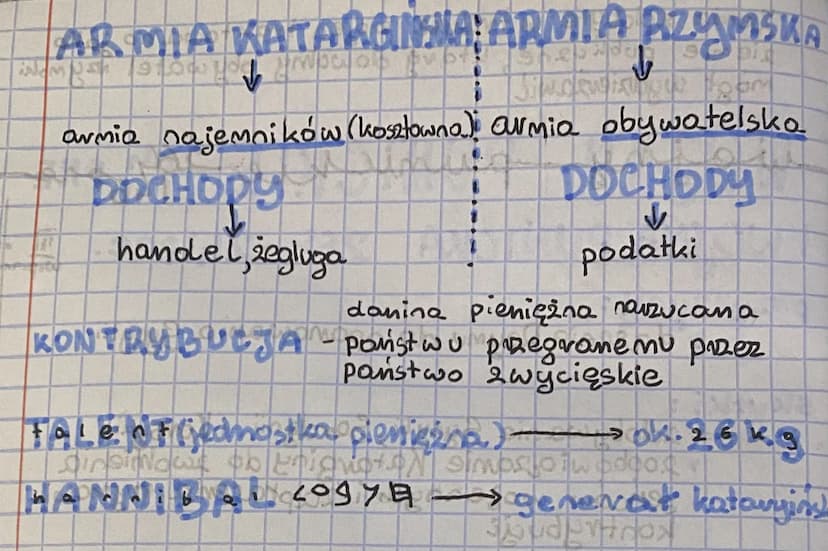 ARMIA KATARGIŃSKA ARMIA RZYMSKA
armia najemników (kosztowna) armia obywatelska
DOCHODY DOCHODY
handel, żegluga podatki
danina pieniężna narzucana
KONTRYBUCJA - państwu przegranemu przez
państwo zwycięskie
TALENT (jednostka pieniężna) → ok. 26 kg
HANNIBAL → generał